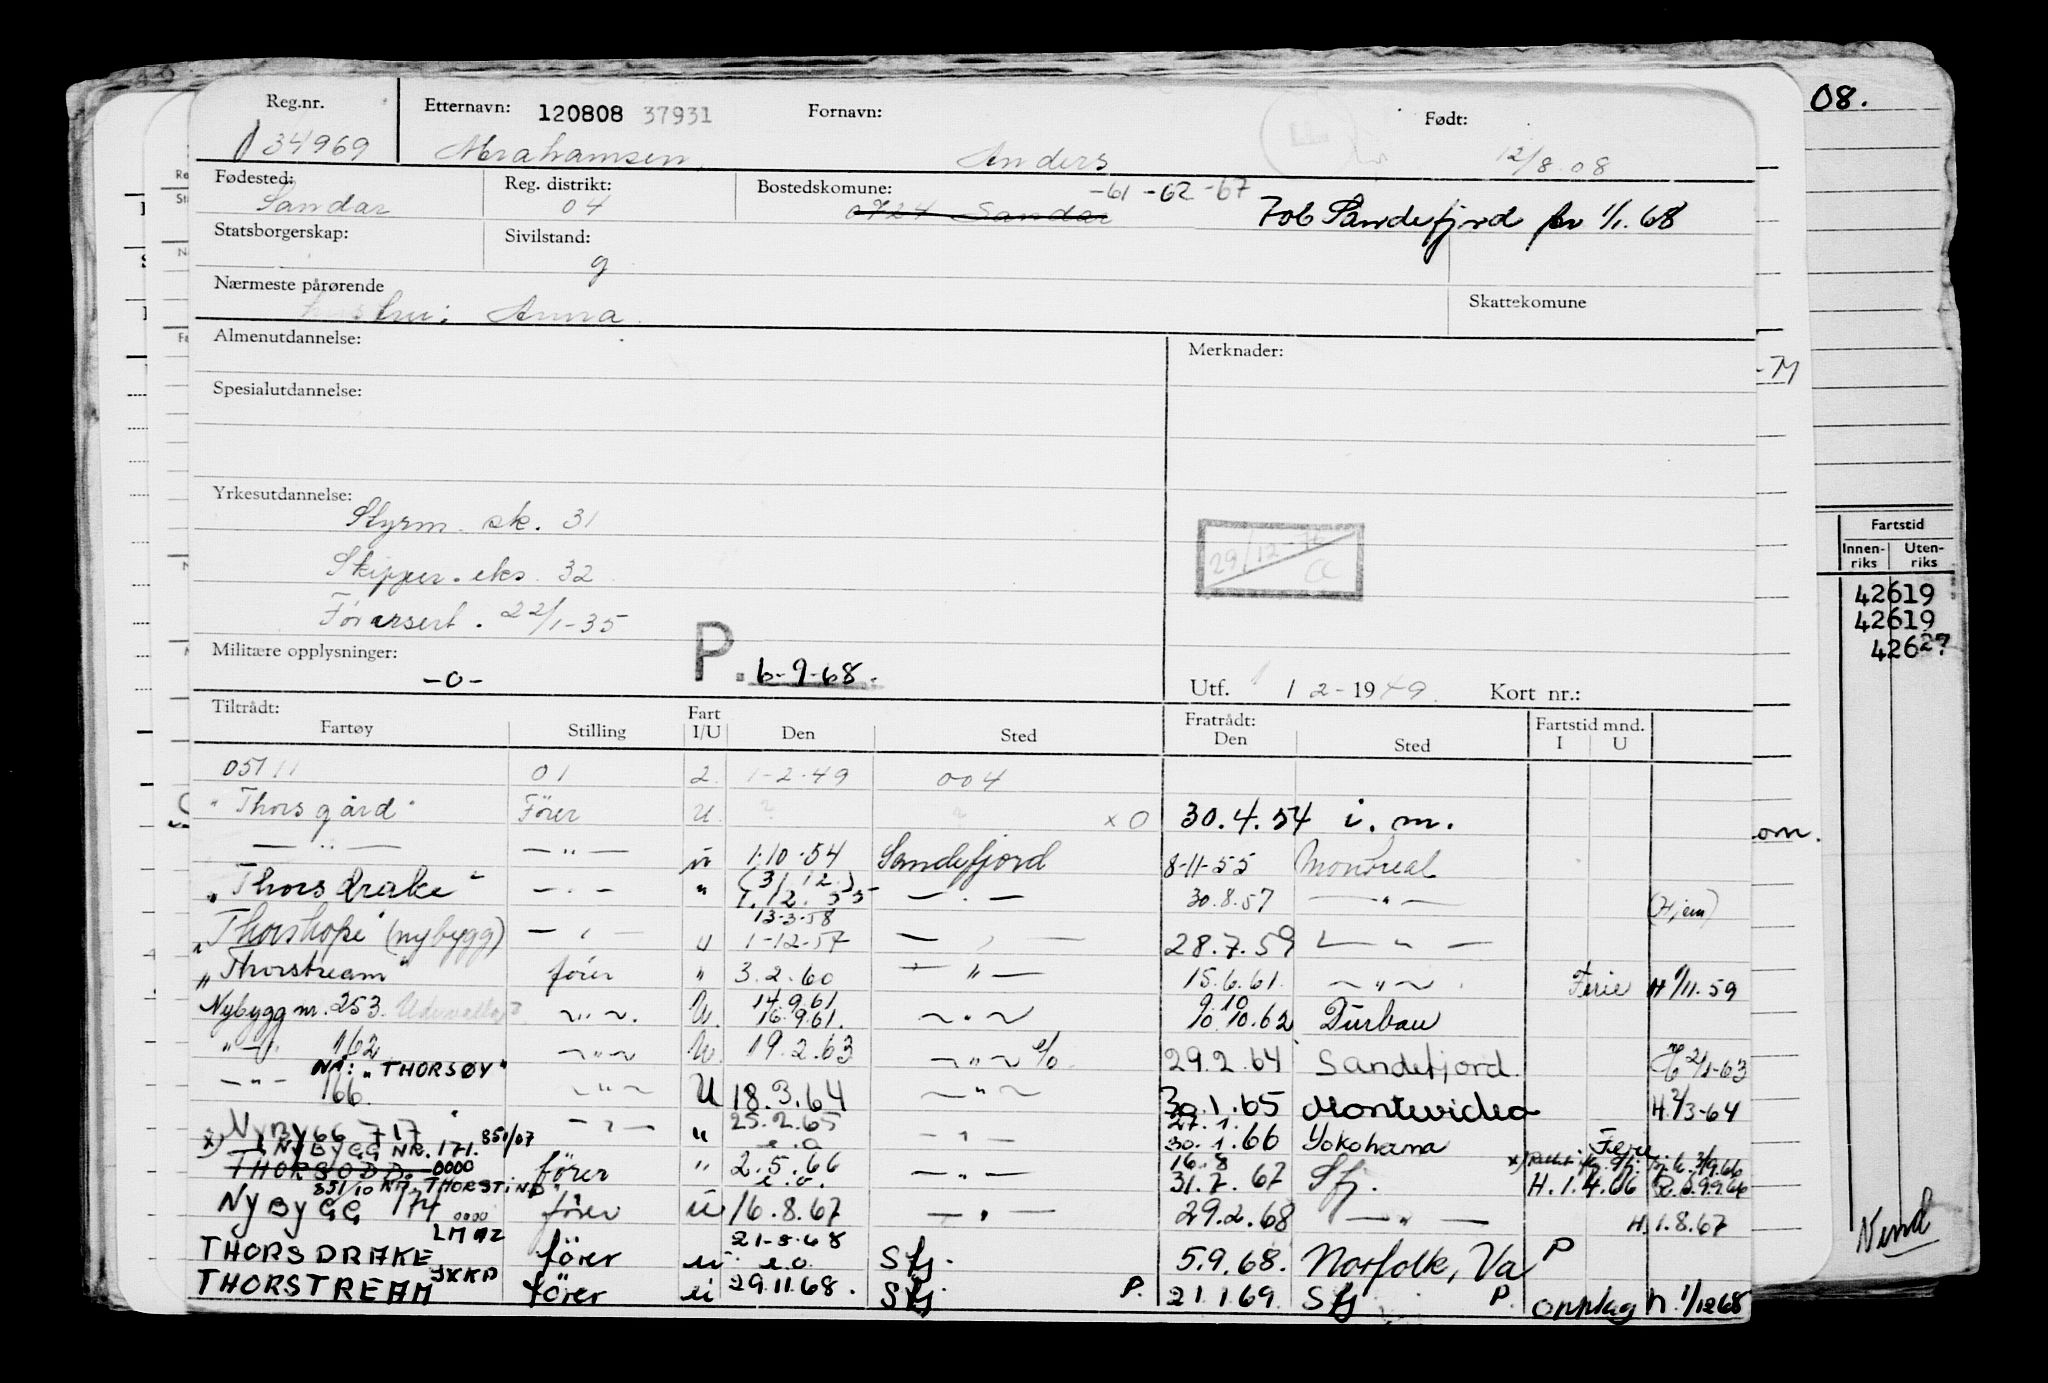 08.
Reg.nr. Etternavn: 120808 37931 Fornavn: Født:
34969 Abrahamsen Anders 12/8 08
Fødested: Reg. distrikt: Bostedskomune: -61 -62 -67
Sandar 04 0724 Sandar 706 Sandefjord pr 1/1. 68
Statsborgerskap: Sivilstand:
g
Nærmeste pårørende Skattekomune
Anna
Almenutdannelse: Merknader:
Spesialutdannelse:
Yrkesutdannelse:
Styrm. sk. 31
Skipper. eks. 32
Førersert. 22/1-35
29/12-
Militære opplysninger: -0- P. 6-9-68.
Utf. 1 2-1949. Kort nr.:
Tiltrådt: Fart Fratrådt: Fartstid mnd.
Fartøy Stilling I/U Den Sted Den Sted I U
05111 01 2. 1-2-49 004
"Thorsgård" Förer U. x O 30.4.54 i. m.
— " — — " — u 1.10-54 Sandefjord 8-11-55 Montreal
"Thorsdrake" — " — " (3/12) 1.12.55 — " — 30.8.57 — " — (Hjem)
13-3-58
"Thorshope" (nybygg) — " — u 1-12-57 — " — 28.7.59 — " —
"Thorstream" förer " 3.2.60 — " — 15.6.61. — " — Ferie H 9/11.59
14.9.61 9.10
Nybygg nr. 253. Uddevalla — " —. U. 16.9.61. — " — 10.10.62 Durban
" — " 162 — " — U. 19.2.63 — " — e/o 29.2.64 Sandefjord. 2/1-63
NÅ: "THORSØY"
— " — 166. — " — U 18.3.64 — " — 30.1.65 Montevideo H. 2/3-64
25.2.65 27.1.
NYBYGG 717 — " — " e.o — " — 30.1.66 Yokohama Ferie
x) NYBYGG NR. 171. 851/07
THORSODD. 0000 förer " 2.5.66 e.o. — " — 16.8 31.7.67 Sfj. H.1.4.66
851/10 NÅ "THORSTIND"
NYBYGG 174 0000 förer u 16.8.67 — " — 29.2.68 — " — H. 1.8.67
LMAZ 21-5-68
THORSDRAKE förer u e.o. Sfj. 5.9.68. Norfolk, Va P
JXKP
THORSTREAM förer u 29.11.68. Sfj P. 21.1.69. Sfj P. opplag h. 1/12 68
-M
om.
Fartstid
Innen-riks Uten-riks
42619
42619
42627
Vend